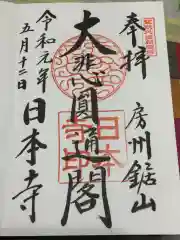 奉拝
房州鋸山
大悲圓通閣
日本寺
令和元年
五月十二日
日本寺